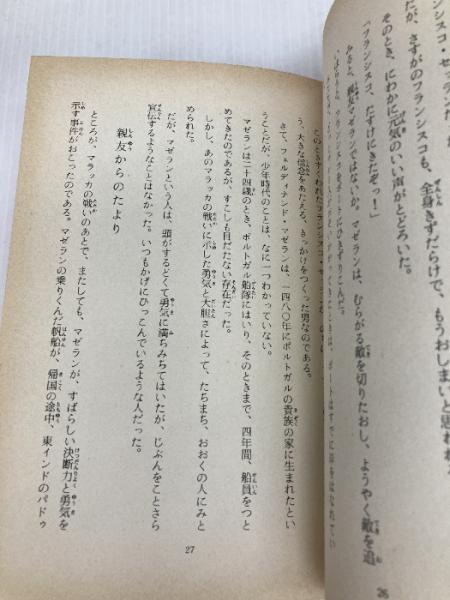 ンシスコ・セ
だが、さすがのフランシスコも、全身きずだらけで、もうおしまいと思われ
そのとき、にわかに元気のいい声がとどろいた。
「フランシスコ、たすけにきたぞっ！」
みると、親友マゼランではないか。マゼランは、むらがる敵を切りたおし、ようやく敵を追
26
う、大きな信念をあたえる、きっかけをつくった男なのである。
さて、フェルディナンド・マゼランは、一四八〇年にポルトガルの貴族の家に生まれたとい
うことだが、少年時代のことは、なに一つわかっていない。
マゼランは二十四歳のとき、ポルトガル船隊にはいり、そのときまで、四年間、船員をつと
めてきたのであるが、すこしも目だたない存在だった。
しかし、あのマラッカの戦いに示した勇気と大胆さによって、たちまち、おおくの人にみと
められた。
だが、マゼランという人は、頭がするどくて勇気に満ちみちてはいたが、じぶんをことさら
宣伝するようなことはなかった。いつもかげにひっこんでいるような人だった。
親友からのたより
ところが、マラッカの戦いのあとで、またしても、マゼランが、すばらしい決断力と勇気を
示す事件がおこったのである。マゼランの乗りくんだ帆船が、帰国の途中、東インドのパドゥ
27